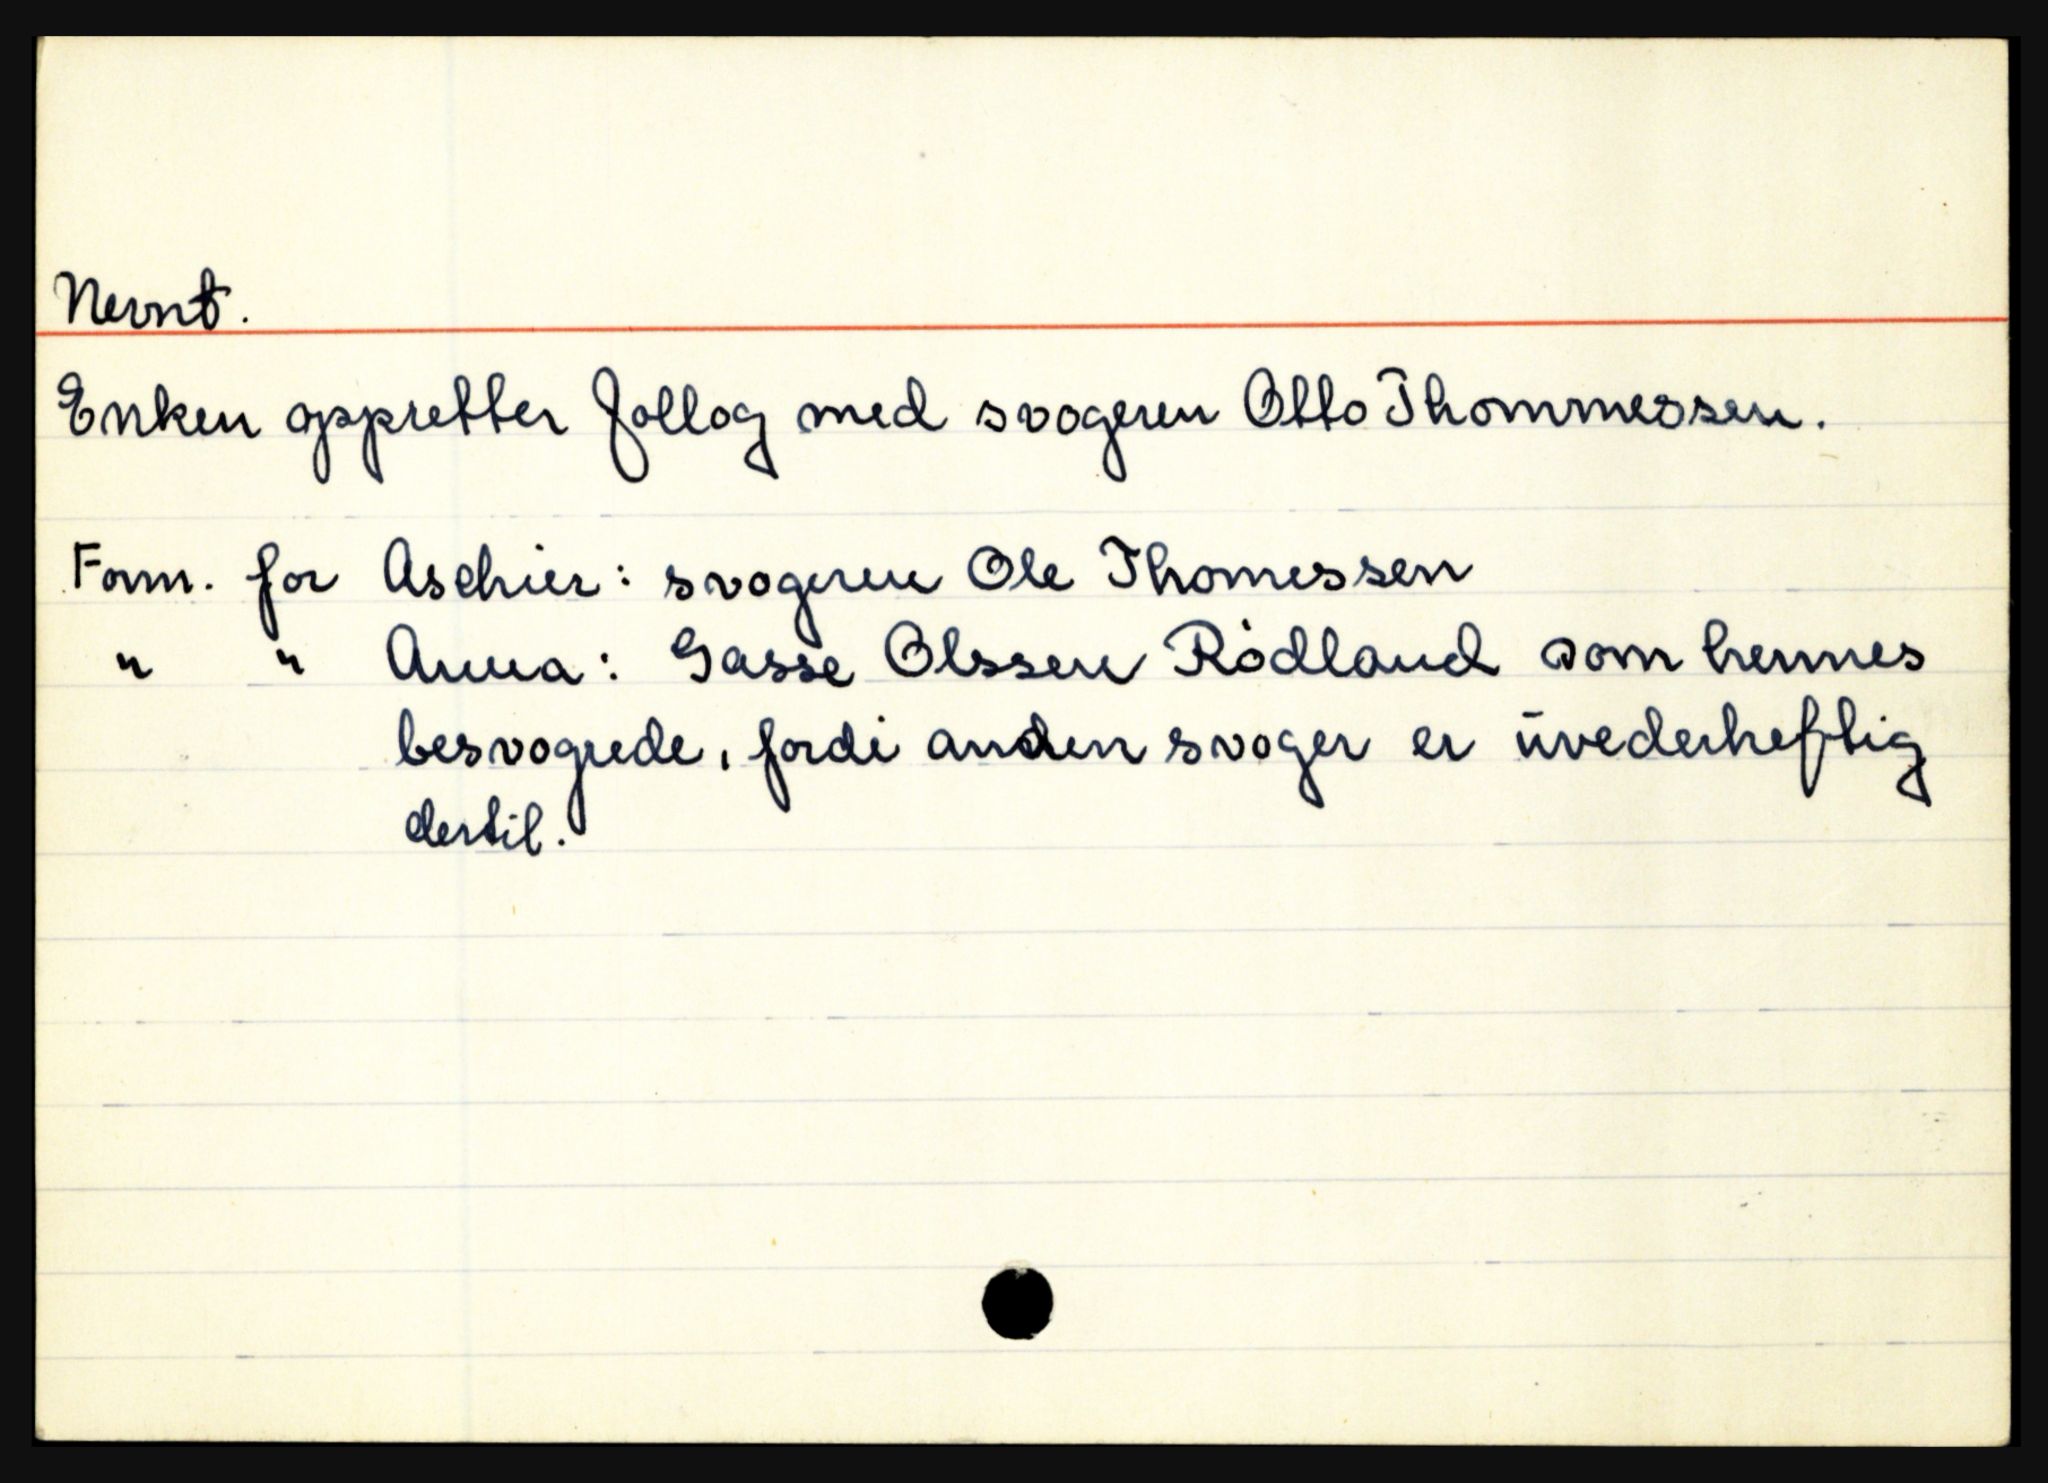 Nevnt.
Enken oppretter follog med svogeren Otto Thommessen.
Form. for Aschier: svogeren Ole Thomessen
" " Anna: Gasse Olssen Rödland som hennes
besvogrede, fordi anden svoger er uvederheftig
dertil.